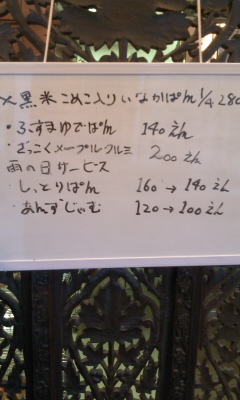 黒米こめこ入りいなかぱm 1/4 280
・ふすまゆでぱm 140えん
・ざっこくメープル・クルミ 200えん
雨の日サービス
・しっとりぱm 160→140えん
・あんずじゃむ 120→100えん